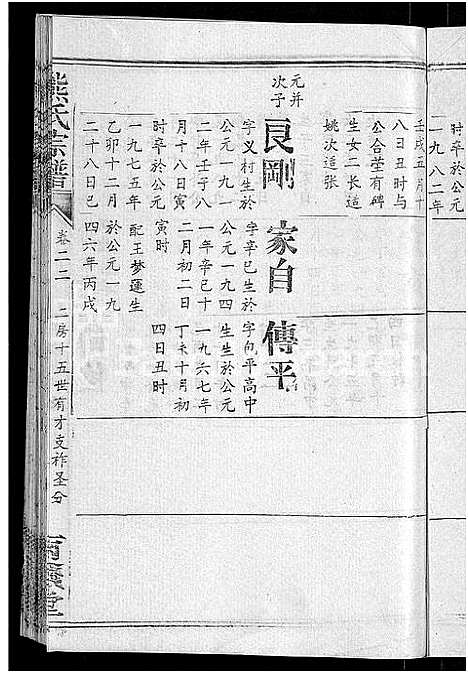 一九八二年
壬戌五月十
八日丑时与
公合茔有碑
生女二长适
姚次适张
元并
次子
良剛
字义村生於
公元一九一
二年壬子八
月十八日寅
时卒於公元
一九七五年
乙卯十二月
二十八日巳
家自
字辛巳生於
公元一九四
一年辛巳十
二月初二日
寅时
配王梦莲生
於公元一九
四六年丙戌
傳平
字向平高中
生生於公元
一九六七年
丁未十月初
四日丑时
熊氏宗譜
卷二二
二房十五世有才支祚圣分
堂